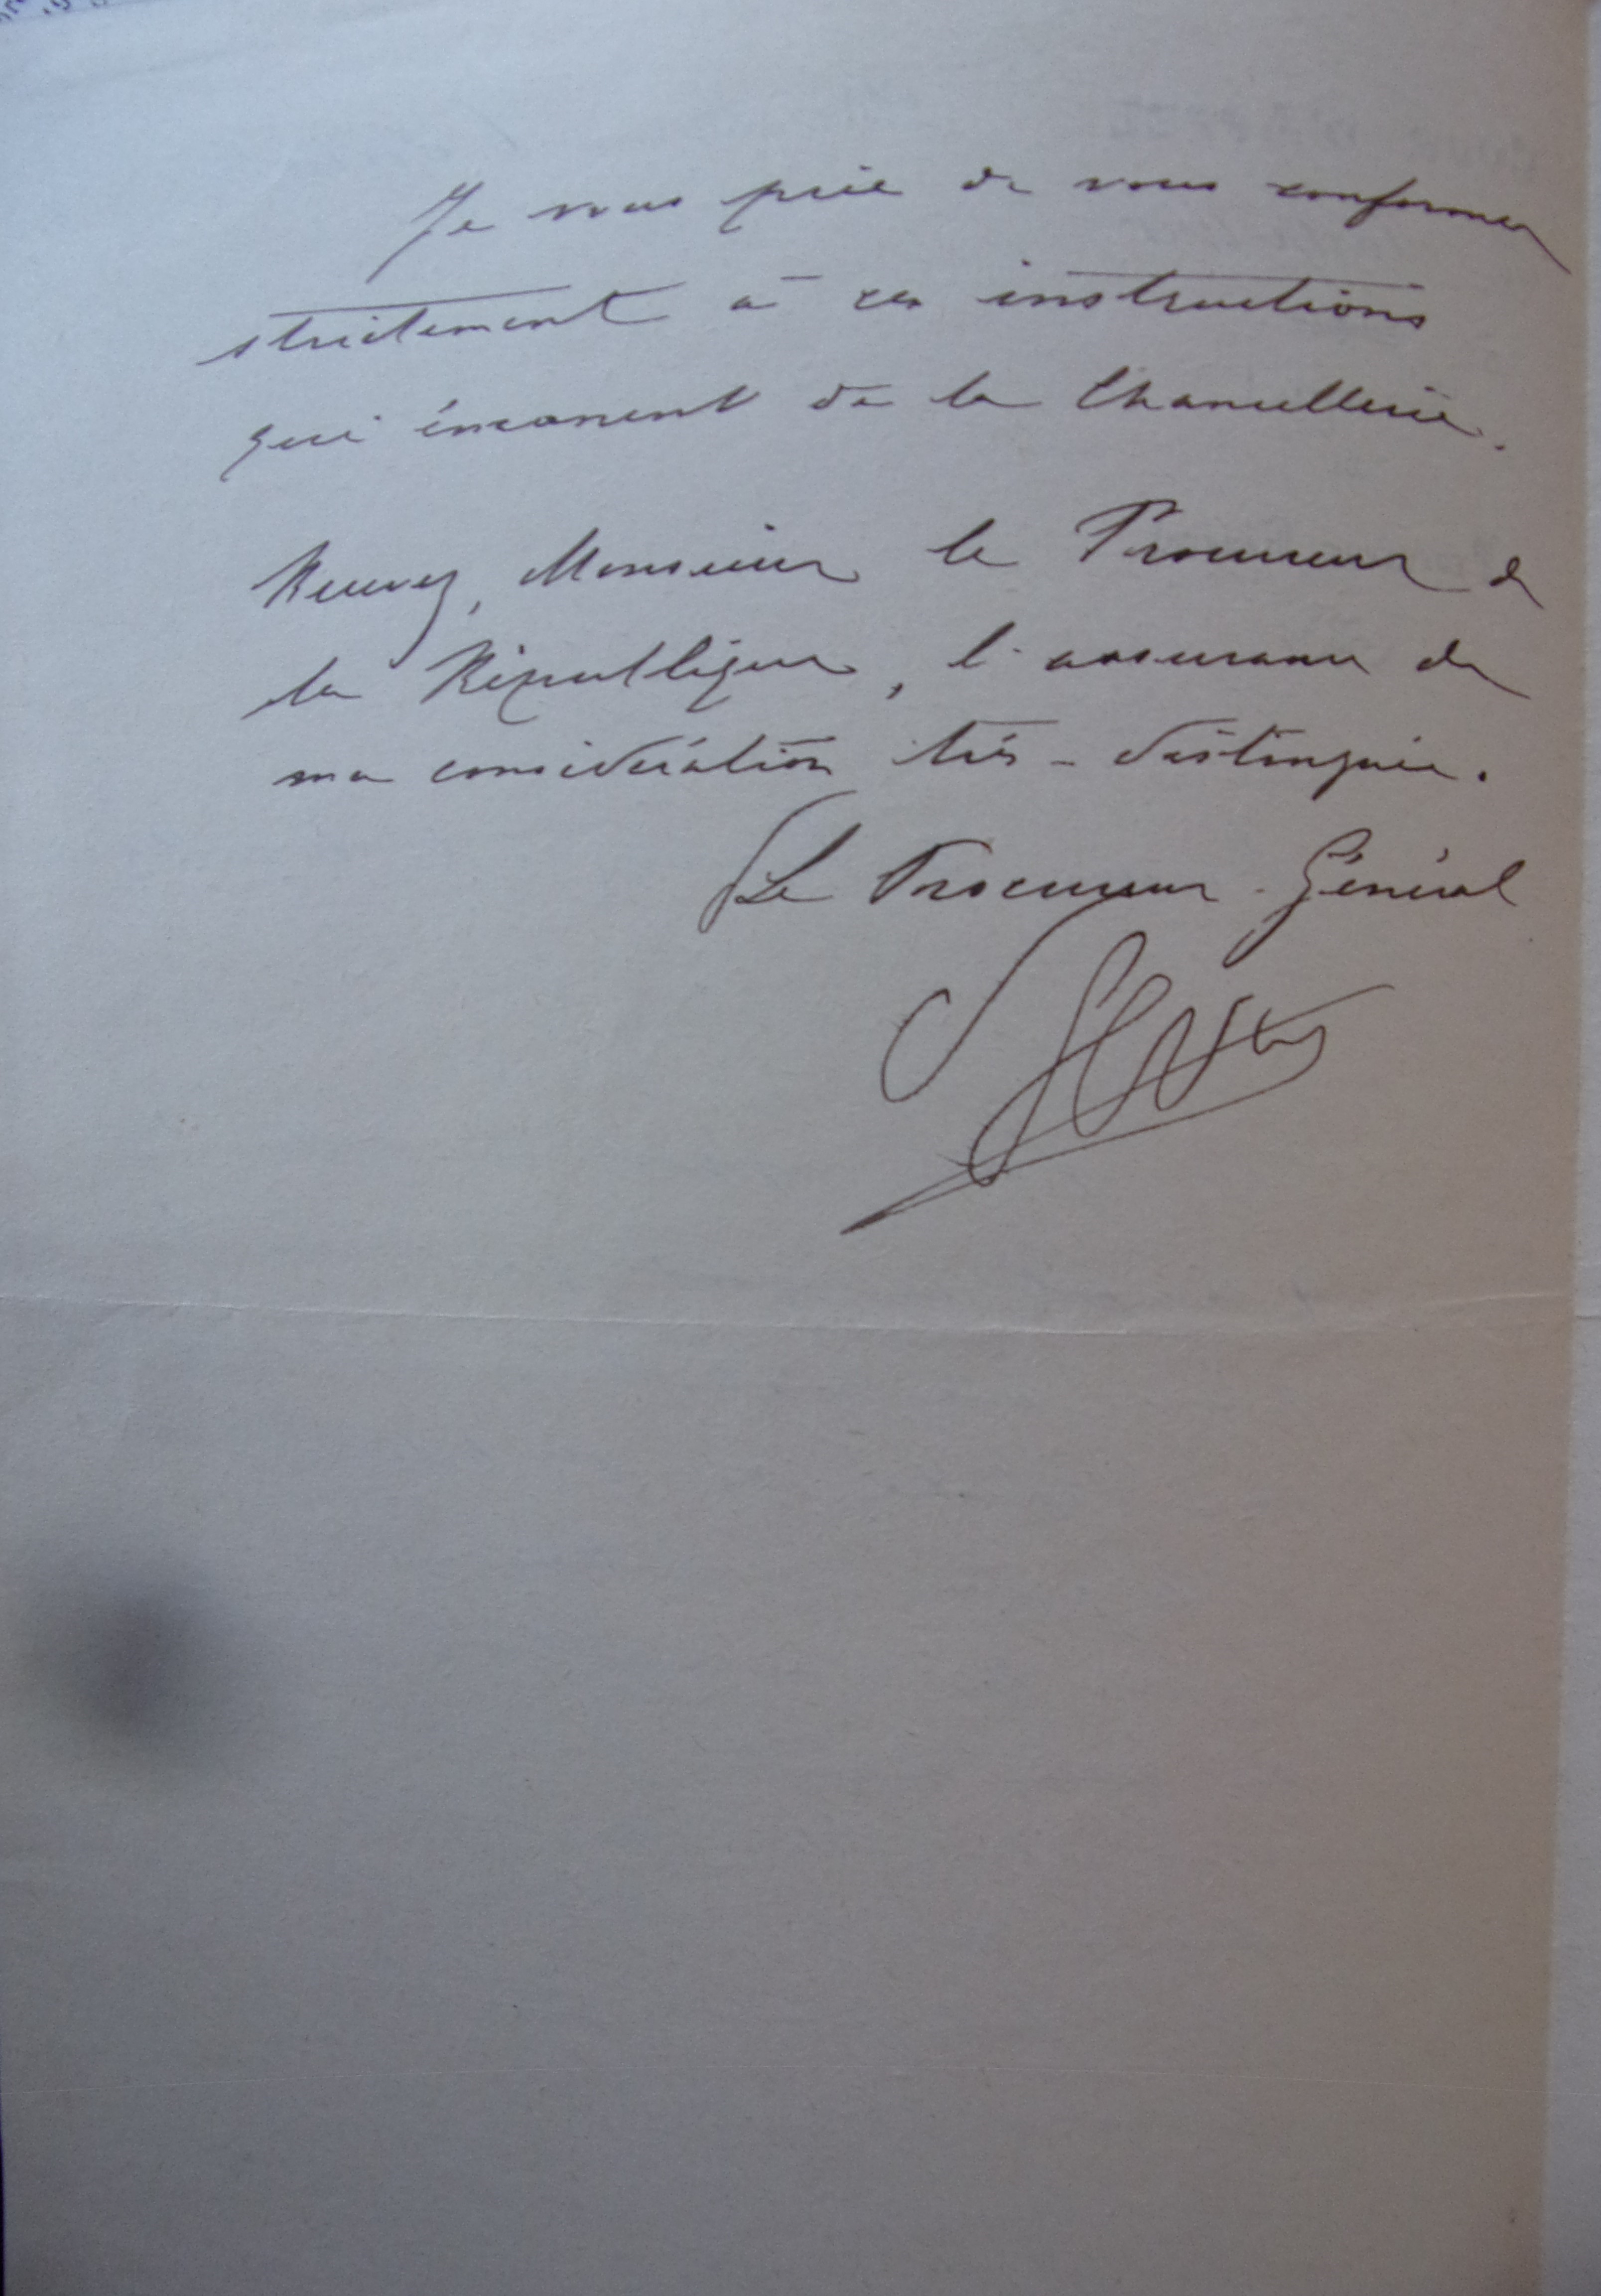 Je vous prie de vous conformer
strictement à ces instructions
qui émanent de la Chancellerie.
Recevez, Monsieur le Procureur de
la République, l'assurance de
ma considération très-distinguée.
Le Procureur-Général